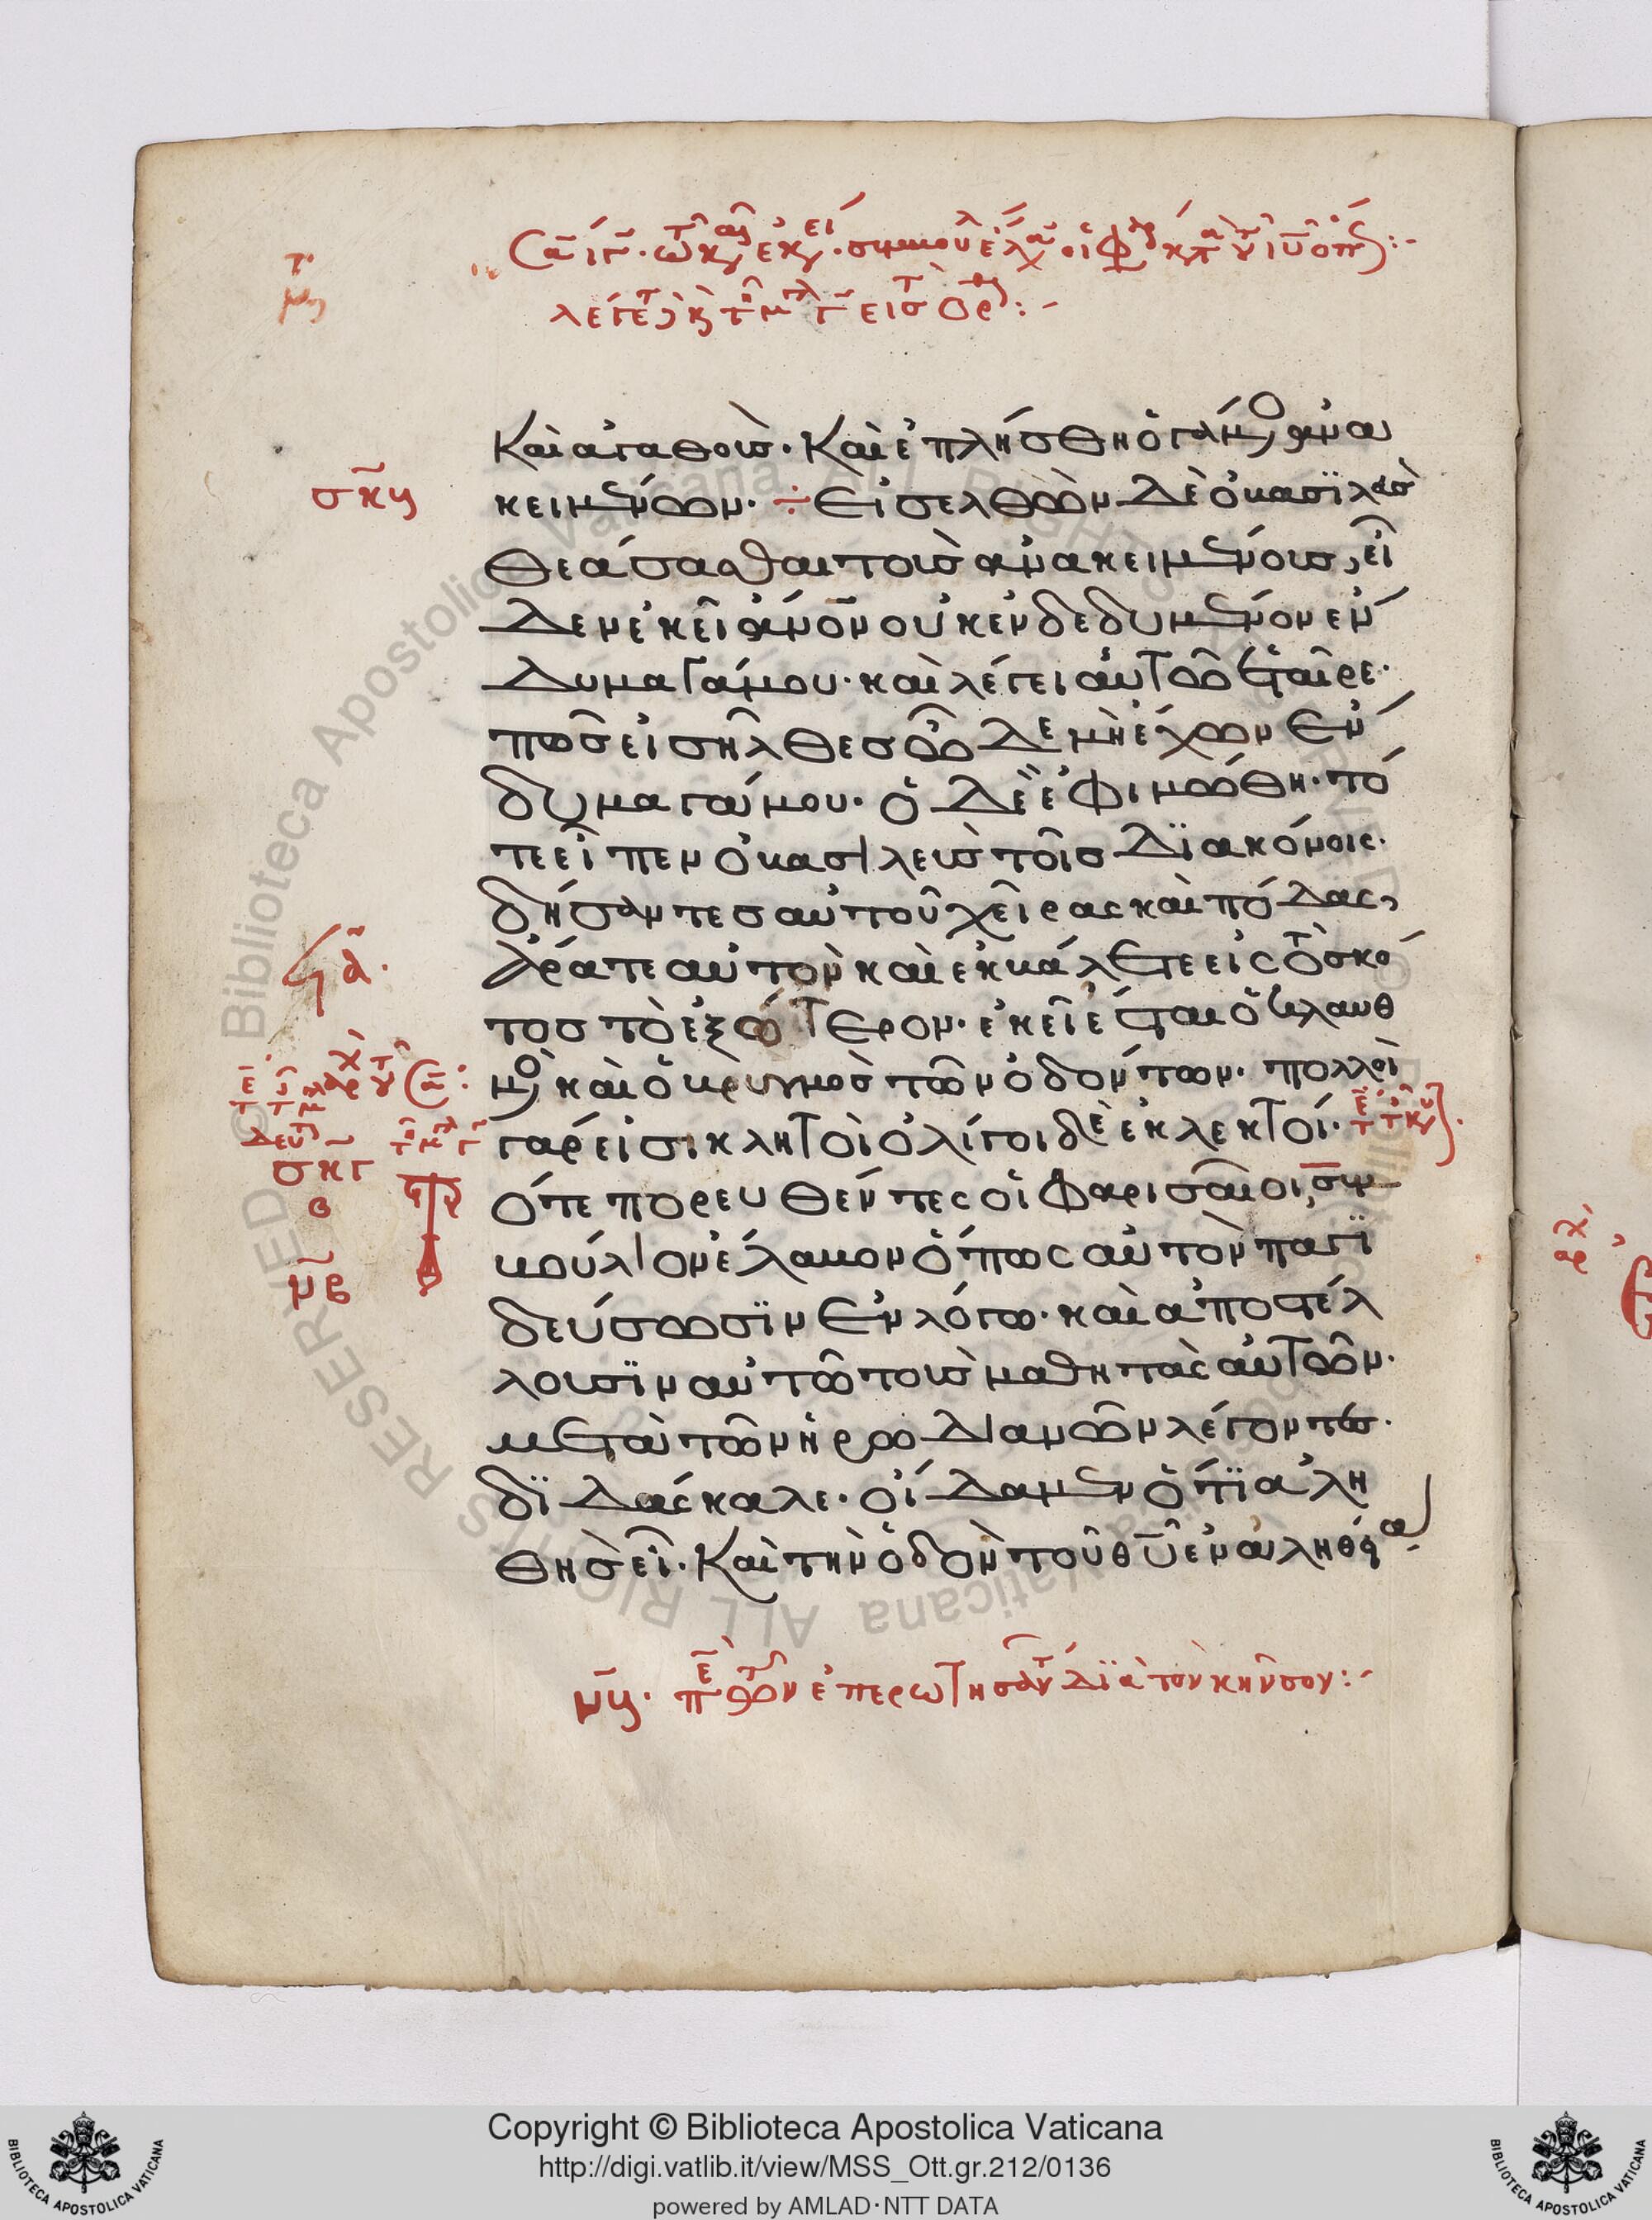 Καὶ ἀγαθοὺς· Καὶ ἐπλήσθη ὁ γάμος ἀνα
κειμένων· ÷ Εἰσελθὼν δὲ ὁ βασϊλεὺς
θεάσασθαι τοὺς ἀνακειμένους, εἶ
δεν ἐκεῖ ἄνον οὐκ ἐνδεδυμένον ἔν
δυμα γάμου· καὶ λέγει αὐτῶ ἑταῖρε·
πῶς εἰσῆλθες ὧδε μὴ ἔχων ἔν
δυμα γάμου· ὁ δὲ ἐφιμώθη· τό
τε εἶπεν ὁ βασιλεὺς τοῖς δϊακόνοις·
δήσαντες αὐτοῦ χεῖρας καὶ πόδας,
ἄρατε αὐτὸν καὶ ἐκβάλετε εἰς τὸ σκό
τος τὸ ἐξώτερον· ἐκεῖ ἔσται ὁ κλαυθ
μὸς καὶ ὁ βρυγμὸς τῶν ὀδόντων· πολλοὶ
γάρ εἰσι κλητοὶ ὀλίγοι δὲ ἐκλεκτοί·
σκγ
Ότε πορευθέντες οἱ Φαρισαῖοι, συμ
βούλιον ἔλαβον ὅπως αὐτὸν παγϊ
δεύσωσϊν ἐν λόγω· καὶ ἀποστέλ
λουσϊν αὐτῶ τοὺς μαθητὰς αὐτῶν·
μετὰ τῶν ἡρωδιανῶν λέγοντες·
δϊδάσκαλε· οἴδαμεν ὅτϊ ἀλη
θὴς εἶ· Καὶ τὴν ὁδὸν τοῦ θῦ ἐν ἀληθεία
ἐπερωτησάντ δϊὰ τὸν κῆνσον:-
Copyright © Biblioteca Apostolica Vaticana
http://digi.vatlib.it/view/MSS_Ott.gr.212/0136
powered by AMLAD·NTT DATA
BIBLIOTECA APOSTOLICA VATICANA
BIBLIOTECA APOSTOLICA VATICANA